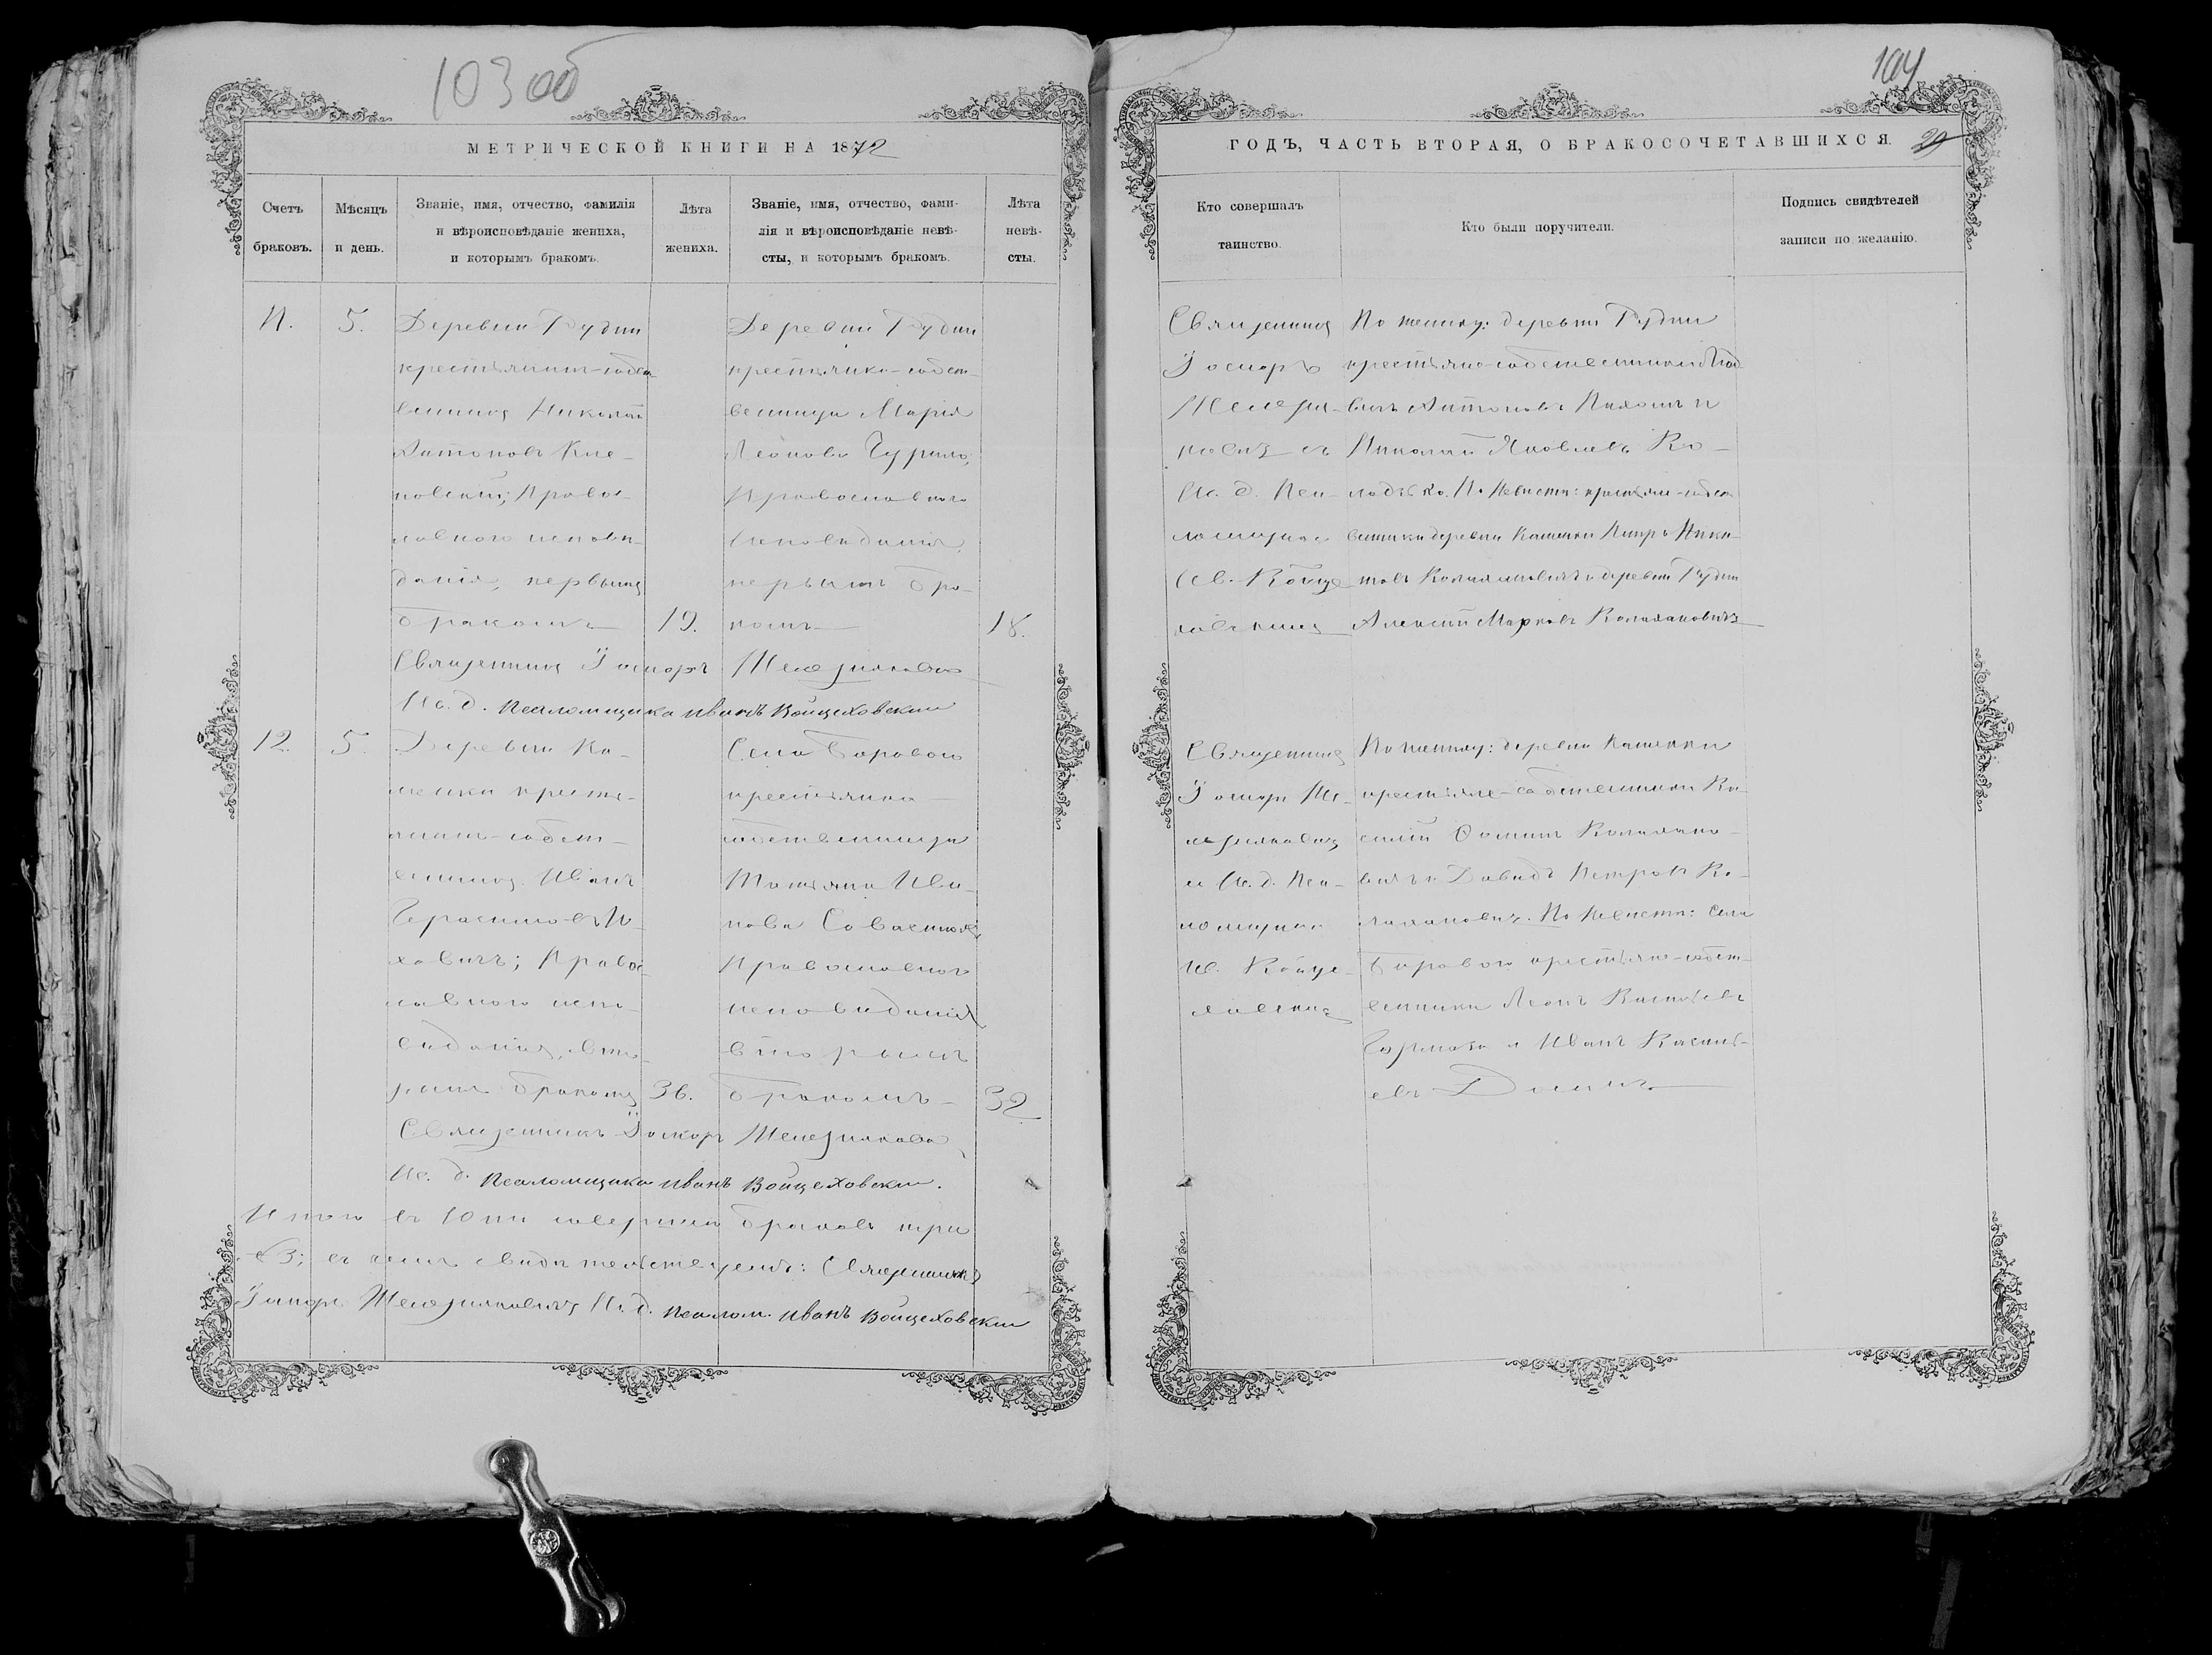 103 об
МЕТРИЧЕСКОЙ КНИГИ НА 1872
Счетъ
браковъ.
Мѣсяцъ
и день.
Званіе, имя, отчество, фамилія
и вѣроисповѣданіе жениха,
и которымъ бракомъ.
Лѣта
жениха.
Званіе, имя, отчество, фами-
лія и вѣроисповѣданіе невѣ-
сты, и которымъ бракомъ.
Лѣта
невѣ-
сты.
11.
5.
Деревни Рудни
крестьянинъ-собст-
венникъ Николай
Антоновъ
Правос-
лавнаго исповѣ-
данія, первымъ
бракомъ
19.
Деревни Рудни
крестьянка-собст-
венница Марія
Леонова Чурило,
Православнаго
Исповѣданія,
первымъ бра-
комъ
18.
Священникъ Іосифъ
И. д. Псаломщика Иванъ Войцеховскій
12.
5
Деревни Ка-
менки кресть-
янинъ-собст-
венникъ Иванъ
Герасимовъ
Правос-
лавнаго испо-
вѣданія, вто-
рымъ бракомъ
36.
Села Борового
крестьянка
собственница
Татьяна Ива-
нова
Православнаго
исповѣданія
вторымъ
бракомъ
32
Священникъ Іосифъ
И. д. Псаломщика Иванъ Войцеховскій.
Итого въ Іюли совершено браковъ три
3; въ чемъ свидѣтельствуемъ: Священникъ
Іосифъ И. д. Псалом. Иванъ Войцеховскій
104
ГОДЪ, ЧАСТЬ ВТОРАЯ, О БРАКОСОЧЕТАВШИХСЯ.
29
Кто совершалъ
таинство.
Кто были поручители.
Подпись свидѣтелей
записи по желанію.
Священникъ
Іосифъ
съ
И. д. Пса-
ломщика
Ив. Войце-
ховскимъ
По жениху: деревни Рудни
крестьяне-собственники
Антоновъ
Николай Яковлевъ Ко-
лодѣко. По невѣсти: крестьяне-собст-
венники деревни Каменки Петръ Ники-
товъ Колахановичъ и деревни Рудни
Алексѣй Марковъ Колахановичъ
Священникъ
Іосифъ
и И. д. Пса-
ломщика
Ив. Войце-
ховскій
По жениху: деревни Каменки
крестьяне-собственники Ва-
силій Ѳоминъ Колахано-
вичъ и Давидъ Петровъ Ко-
лахановичъ. По невѣсти: села
Борового крестьяне-собст-
венники Леонъ Васильевъ
и Иванъ Василь-
евъ